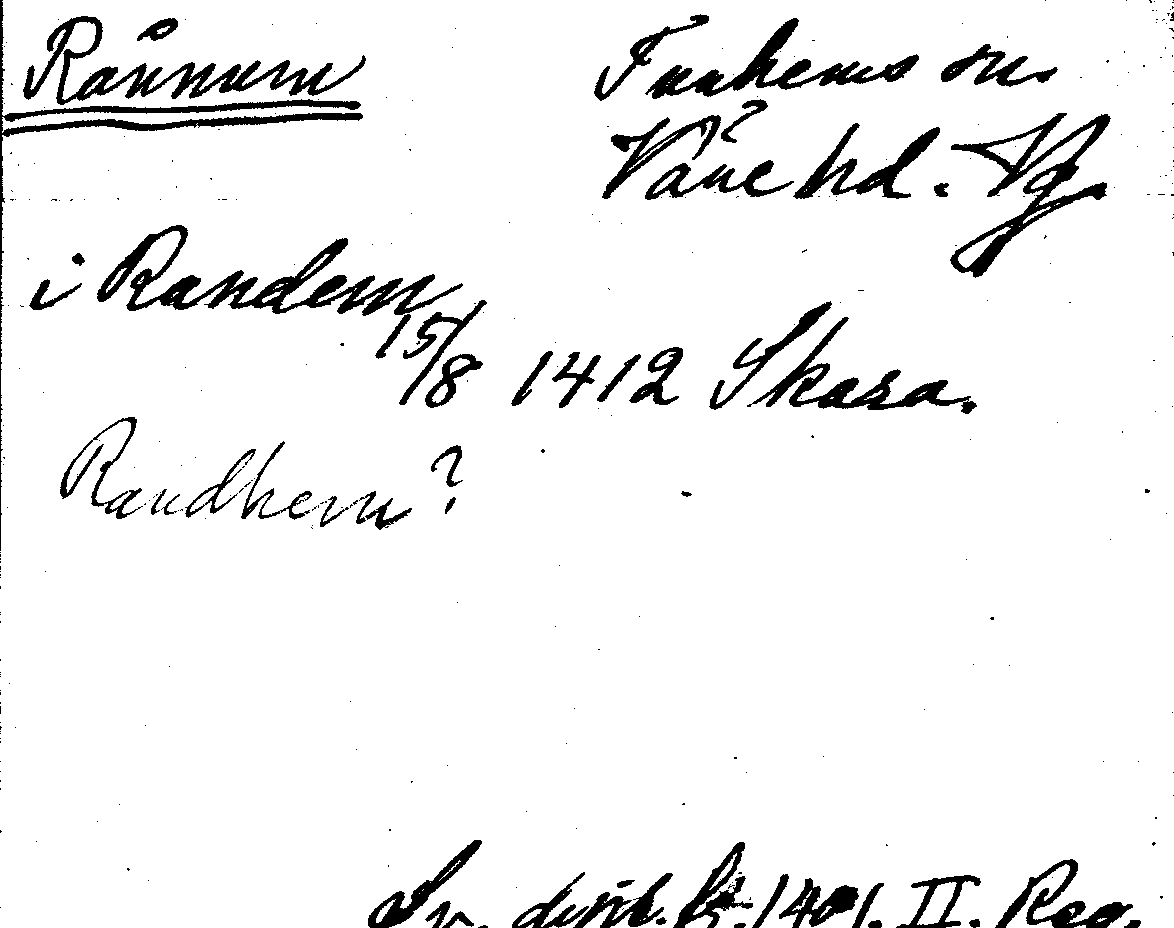 Rånnum
Trunhems sn.
Väne hd. Vg.
i Randem
15/8 1412 Skara.
Randhem?
Sv. dipl. fr. 1401. II. Reg.